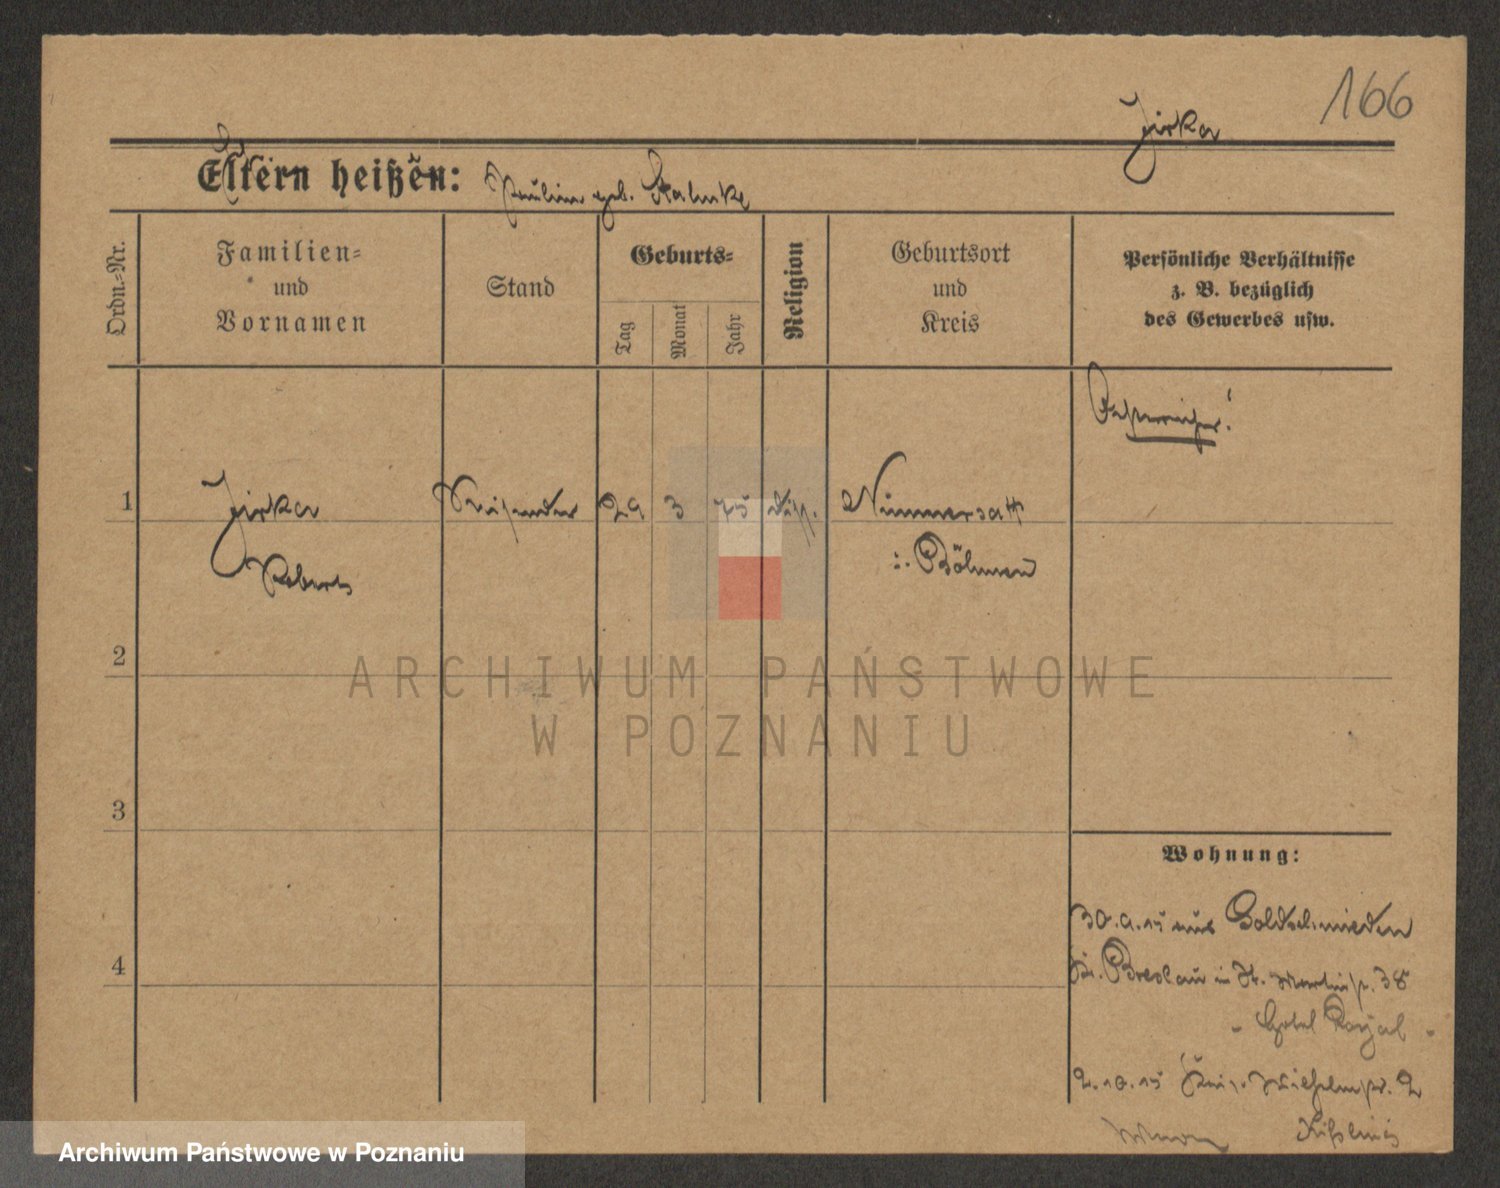 166
Jirka
Eltern heißen:
Pauline geb. Stahnke
Ordn.-Nr.
Familien-
und
Vornamen
Stand
Geburts-
Tag
Monat
Jahr
Religion
Geburtsort
und
Kreis
Persönliche Verhältnisse
z. B. bezüglich
des Gewerbes usw.
Oesterreicher!
1
Jirka
Reisender
29
3
75
diss.
Nimmersatt
i. Böhmen
Robert
2
ARCHIWUM PAŃSTWOWE
W POZNANIU
3
Wohnung:
30.9.15 aus Goldschmieden
4
Kr. Breslau in St. Martinstr. 38
" Hotel Royal "
2.10.15 Wilhelmstr. 2
Archiwum Państwowe w Poznaniu